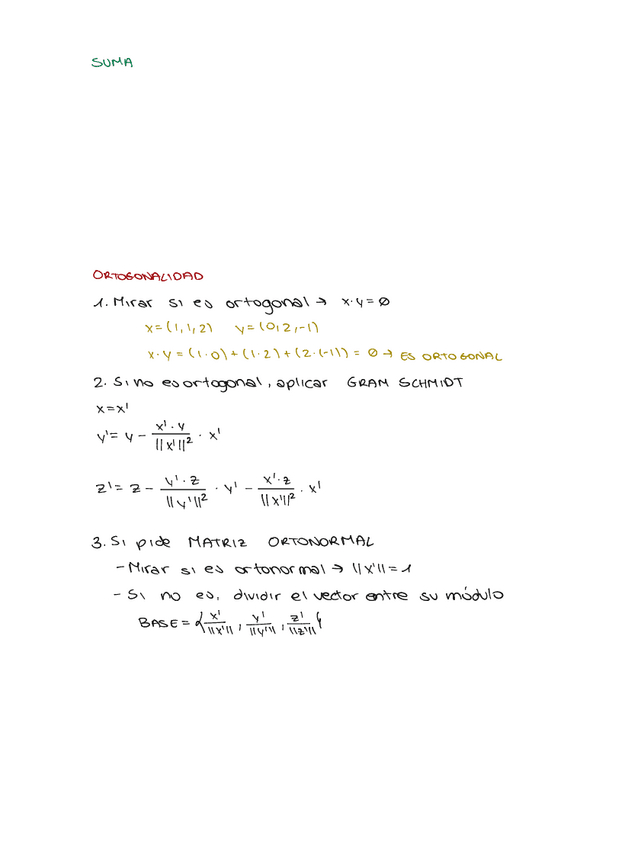 SUMA
ORTOGONALIDAD
1. Mirar si es ortogonal → x·y = 0
x = (1, 1, 2) y = (0, 2, -1)
x·y = (1·0) + (1·2) + (2·(-1)) = 0 → ES ORTOGONAL
2. Si no es ortogonal, aplicar GRAM SCHMIDT
x = x'
y' = y - \frac{x'·y}{||x'||^2} · x'
z' = z - \frac{y'·z}{||y'||^2} · y' - \frac{x'·z}{||x'||^2} · x'
3. Si pide MATRIZ ORTONORMAL
- Mirar si es ortonormal → ||x'|| = 1
- Si no es, dividir el vector entre su módulo
BASE = {\frac{x'}{||x'||}, \frac{y'}{||y'||}, \frac{z'}{||z'||}}